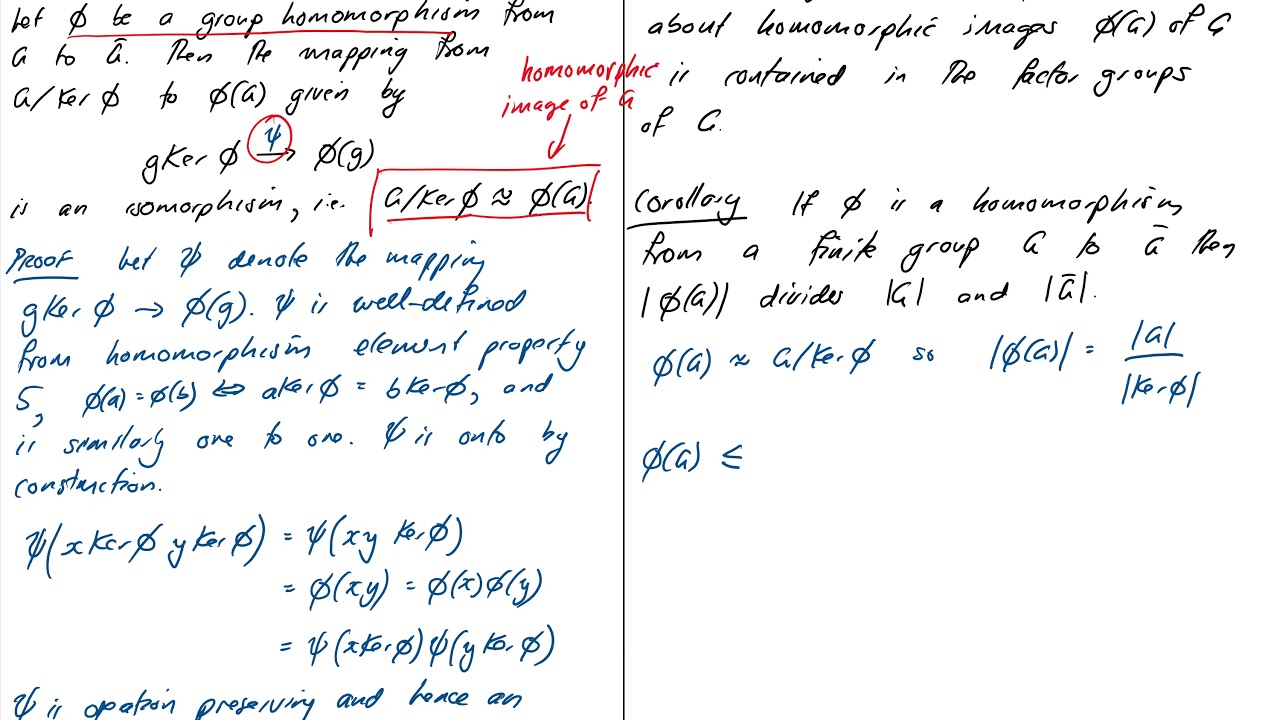 Let φ be a group homomorphism from
G to Ḡ. Then the mapping from
G/Ker φ to φ(G) given by
gKer φ →ψ φ(g)
is an isomorphism, i.e. G/Ker φ ≈ φ(G).
homomorphic
image of G
PROOF Let ψ denote the mapping
gKer φ → φ(g). ψ is well-defined
from homomorphism element property
5, φ(a) = φ(b) ⇔ aKer φ = bKer φ, and
is similarly one to one. ψ is onto by
construction.
ψ(xKer φ yKer φ) = ψ(xy Ker φ)
= φ(xy) = φ(x)φ(y)
= ψ(xKer φ)ψ(yKer φ)
ψ is operation preserving and hence an
about homomorphic images φ(G) of G
is contained in the factor groups
of G.
Corollary If φ is a homomorphism
from a finite group G to Ḡ then
|φ(G)| divides |G| and |Ḡ|.
φ(G) ≈ G/Ker φ so |φ(G)| = |G| / |Ker φ|
φ(G) ≤